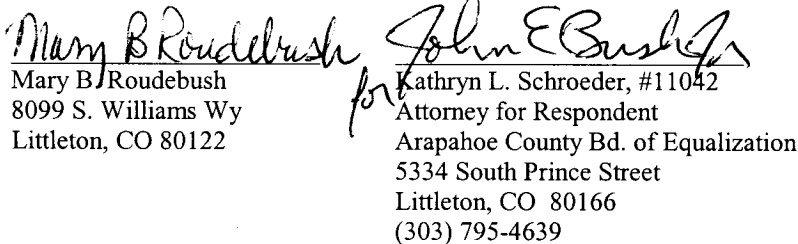 Mary B Roudebush
Mary B. Roudebush
8099 S. Williams Wy
Littleton, CO 80122
John E Bush Jr
for Kathryn L. Schroeder, #11042
Attorney for Respondent
Arapahoe County Bd. of Equalization
5334 South Prince Street
Littleton, CO 80166
(303) 795-4639